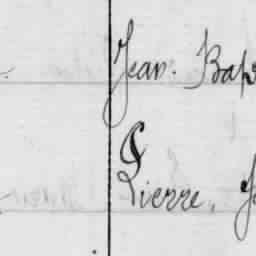 Jean. Bap
Pierre, J